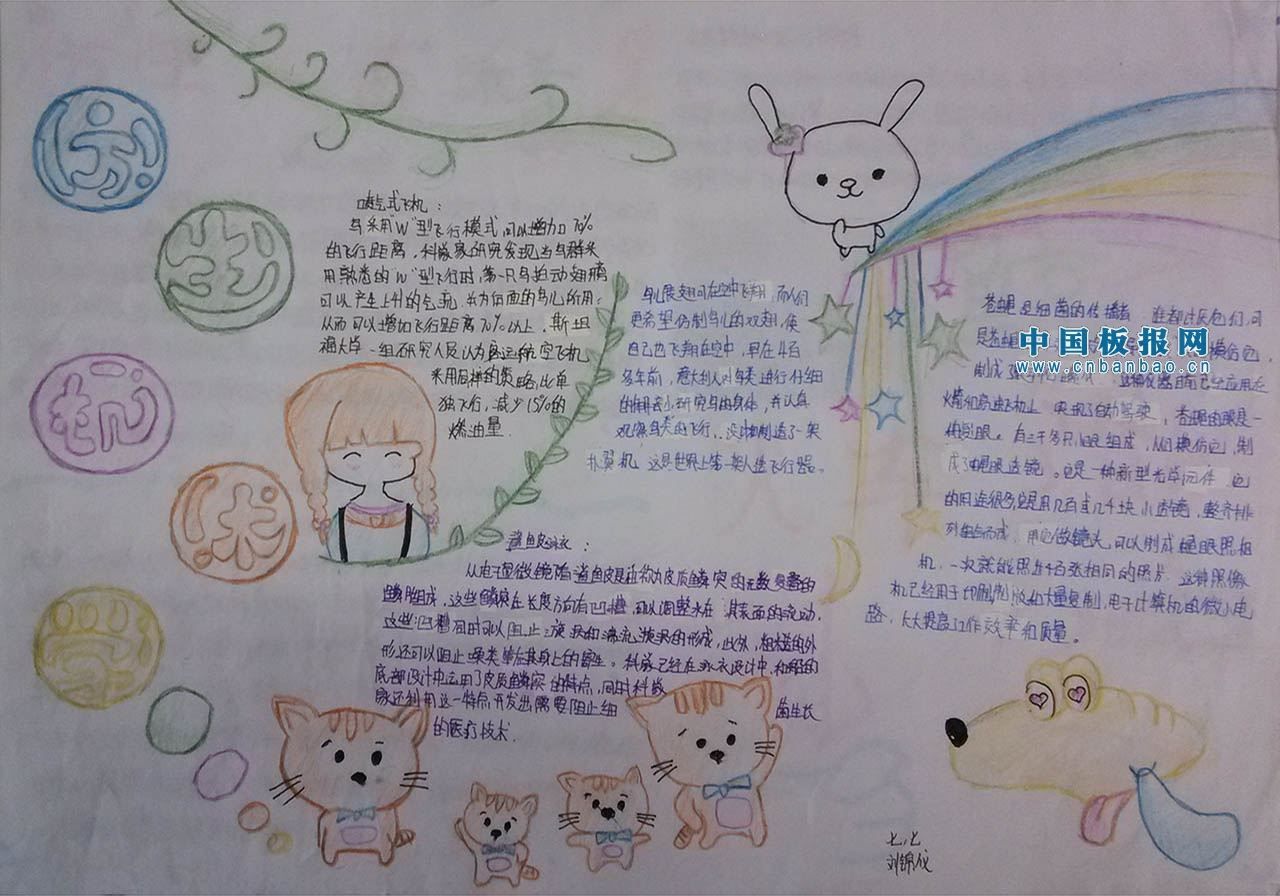 仿
生
机
术
喷气式飞机：
鸟采用"W"型飞行模式,可以增加70%
的飞行距离，科学家研究发现当鸟群采
用熟悉的"W"型飞行时,第一只鸟拍动翅膀
可以产生上升的气流，为后面的鸟儿所用,
从而可以增加飞行距离70%以上，斯坦
福大学一组研究人员认为客运航空飞机
采用同样的策略,比单
独飞行,减少15%的
燃油量.
鸟儿展翅可在空中飞翔，而人们
更希望仿制鸟儿的双翅，使
自己也飞翔在空中，早在4百
多年前，意大利人对鸟类进行仔细
的研究鸟的身体，并认真
观察鸟类的飞行,制造了一架
扑翼机，这是世界上第一架人造飞行器。
苍蝇是细菌的传播者
中国板报网
www.cnbanbao.cn
制成了
火箭和高速飞机上，实现了自动驾驶，苍蝇的眼是一
种复眼。由三千多只小眼组成，人们模仿它，制
成了蝇眼透镜。它是一种新型光学元件，它
的用途很多,是用几百或几千块小透镜，整齐排
列组合而成，用它做镜头,可以制成蝇眼照相
机，一次就能照出千百张相同的照片，这种照像
机已经用于印刷制版和大量复制,电子计算机的微小电
路，大大提高工作效率和质量。
鲨鱼皮泳衣：
从电子显微镜隋鲨鱼皮是由称为皮质鳞突的无数重叠的
鳞片组成，这些鳞突在长度方向有凹槽，可以调整水在其表面的流动，
这些凹槽同时可以阻止旋涡和湍流漩涡的形成，此外，粗糙的外
形还可以阻止藻类等在其身上的寄生。科学已经在泳衣设计中,和船的
底部设计中运用了皮质鳞突的特点，同时科学
家还利用这一特点,开发出需要阻止细菌生长
的医疗技术.
七.七
刘锦仪